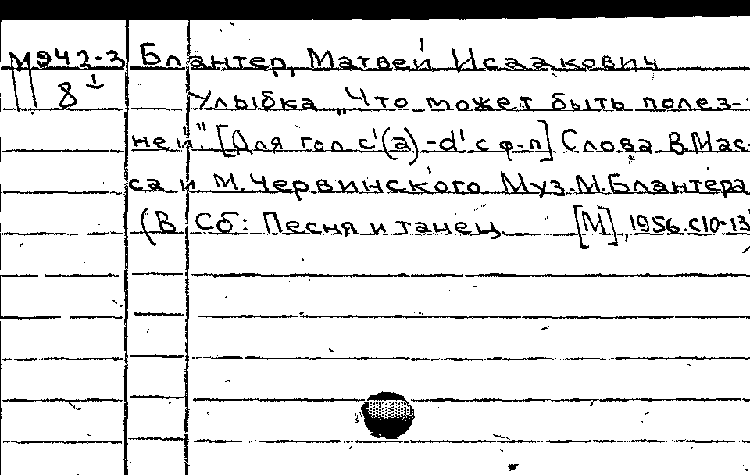 М942-3 Блантер, Матвей Исаакович
8 Улыбка "Что может быть полез-
ней". [Для гол c'(a)-d' с ф-п] Слова В.Мас-
са и М.Червинского Муз.М.Блантера
(В Сб: Песня и танец [М], 1956.с10-13